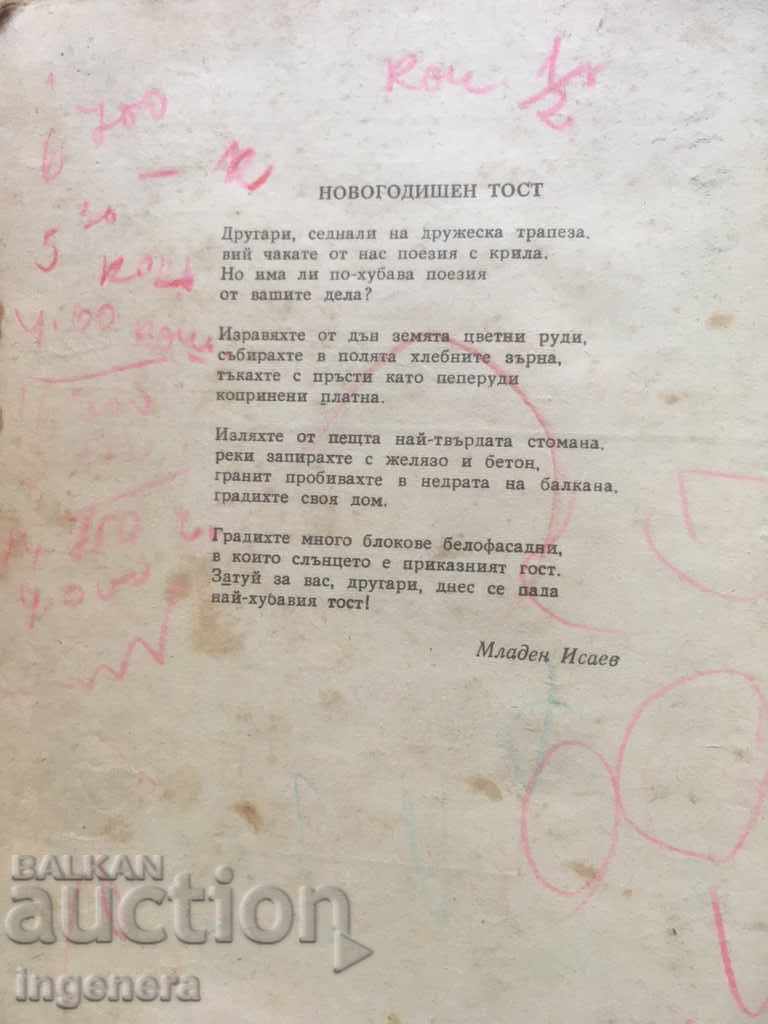 кои 1/2
700
6
— к
30
5
4.00
НОВОГОДИШЕН ТОСТ
Другари, седнали на дружеска трапеза.
вий чакате от нас поезия с крила.
Но има ли по-хубава поезия
от вашите дела?
Изравяхте от дън земята цветни руди,
събирахте в полята хлебните зърна,
тъкахте с пръсти като пеперуди
копринени платна.
Изляхте от пещта най-твърдата стомана.
реки запирахте с желязо и бетон,
гранит пробивахте в недрата на балкана.
градихте своя дом.
Градихте много блокове белофасадни,
в които слънцето е приказният гост.
Затуй за вас, другари, днес се пада
най-хубавия тост!
Младен Исаев
4,000
BALKAN
auction
ingenera